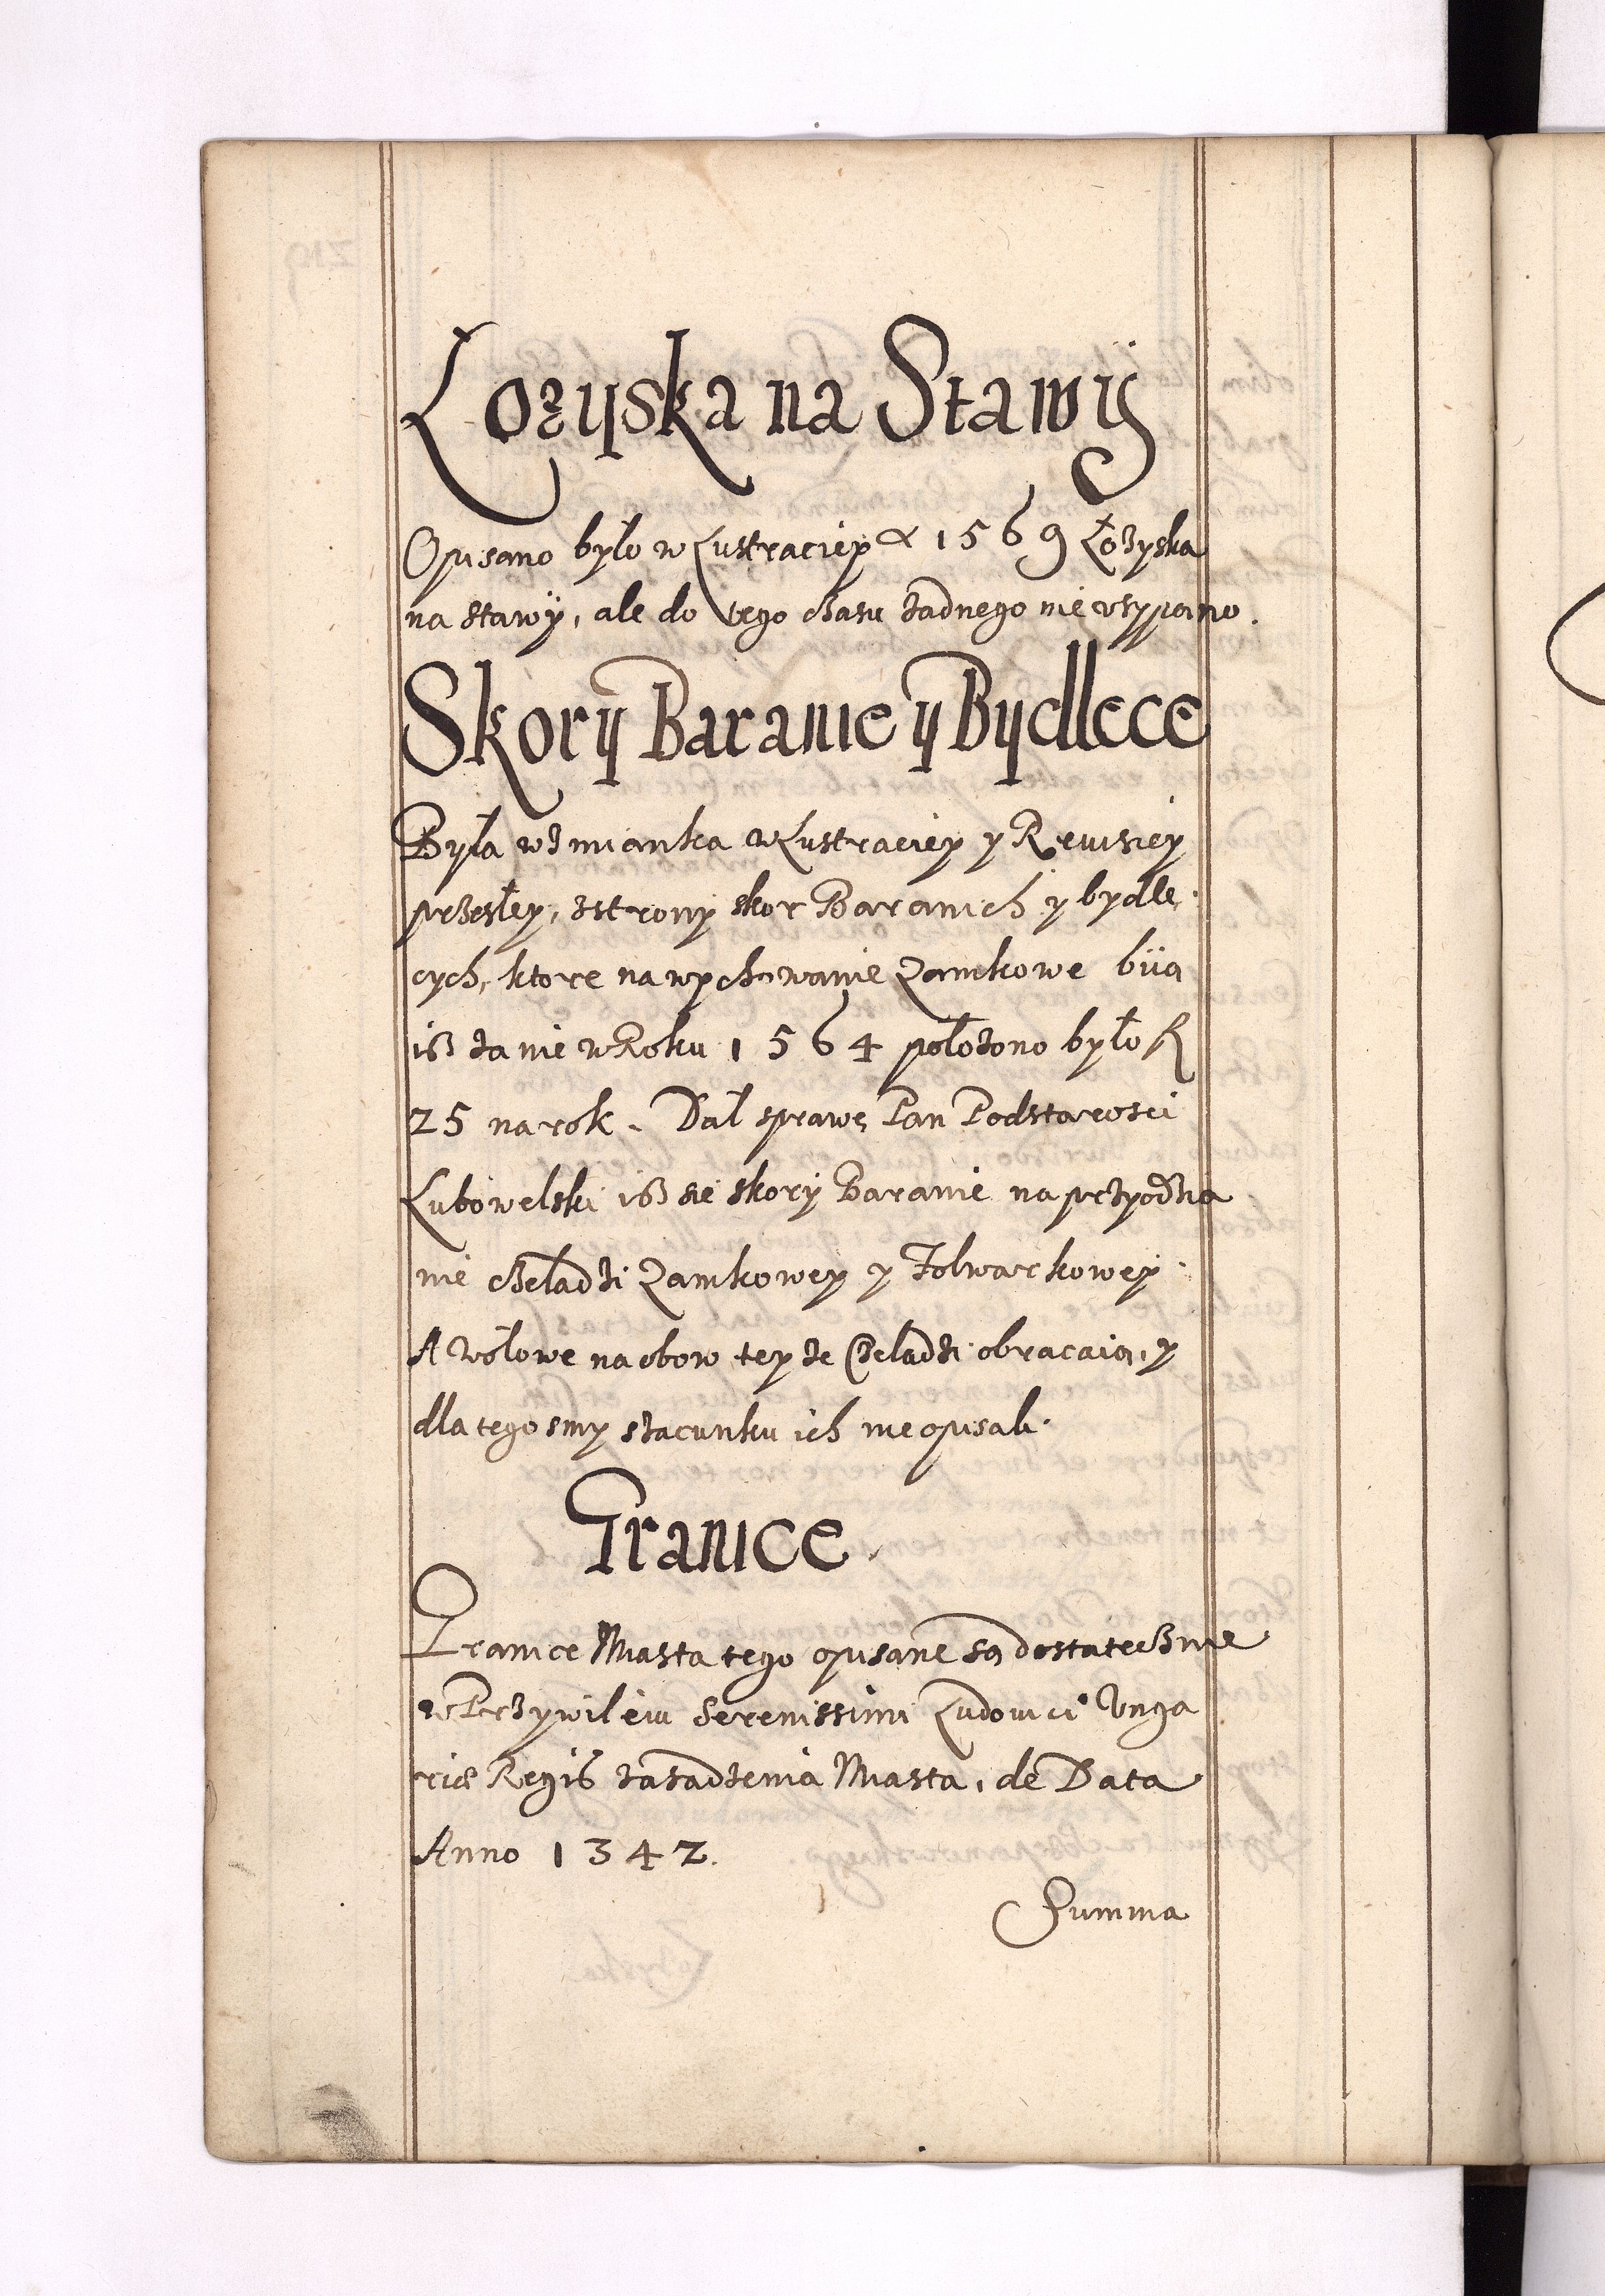 Łozyska na Stawÿ
Opisano było w Lustraciey α 1569 Łozyska
na stawÿ, ale do tego czasu zadnego nie vsypano.
Skory Baranie y Bydlece
Była wzmianka w Lustraciey y Rewisiey
przesłey, zstrony skor Baranich y bydlę,
cych, ktore na wychowanie Zamkowe biią
isz za nie w Roku 1564 położono było fl
25 na rok. Dał sprawę Pan Podstarosci
Lubowelski isz sie skory Baranie na przyodzia
nie czeladzi Zamkowey y Folwarkowey.
A wołowe na obow teyze Czeladzi obracaią, y
dla tego smy szacunku ich nie opisali.
Granice
Granice Miasta tego opisane są dostatecznie
w Przywileiu Serenissimi Ludouici Vnga
riæ Regis zasadzenia Miasta, de Data
Anno 1342.
Summa